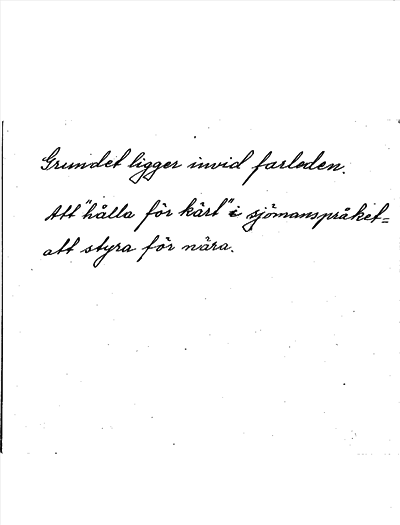 Grundet ligger invid farleden.
Att "hålla för kärt" i sjömanspråket=
att styra för nära.